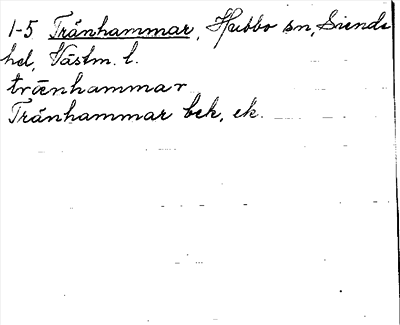 1-5 Tränhammar, Hubbo sn, Siende
hd, Västm. l.
trænhammar
Tränhammar bek, ek.